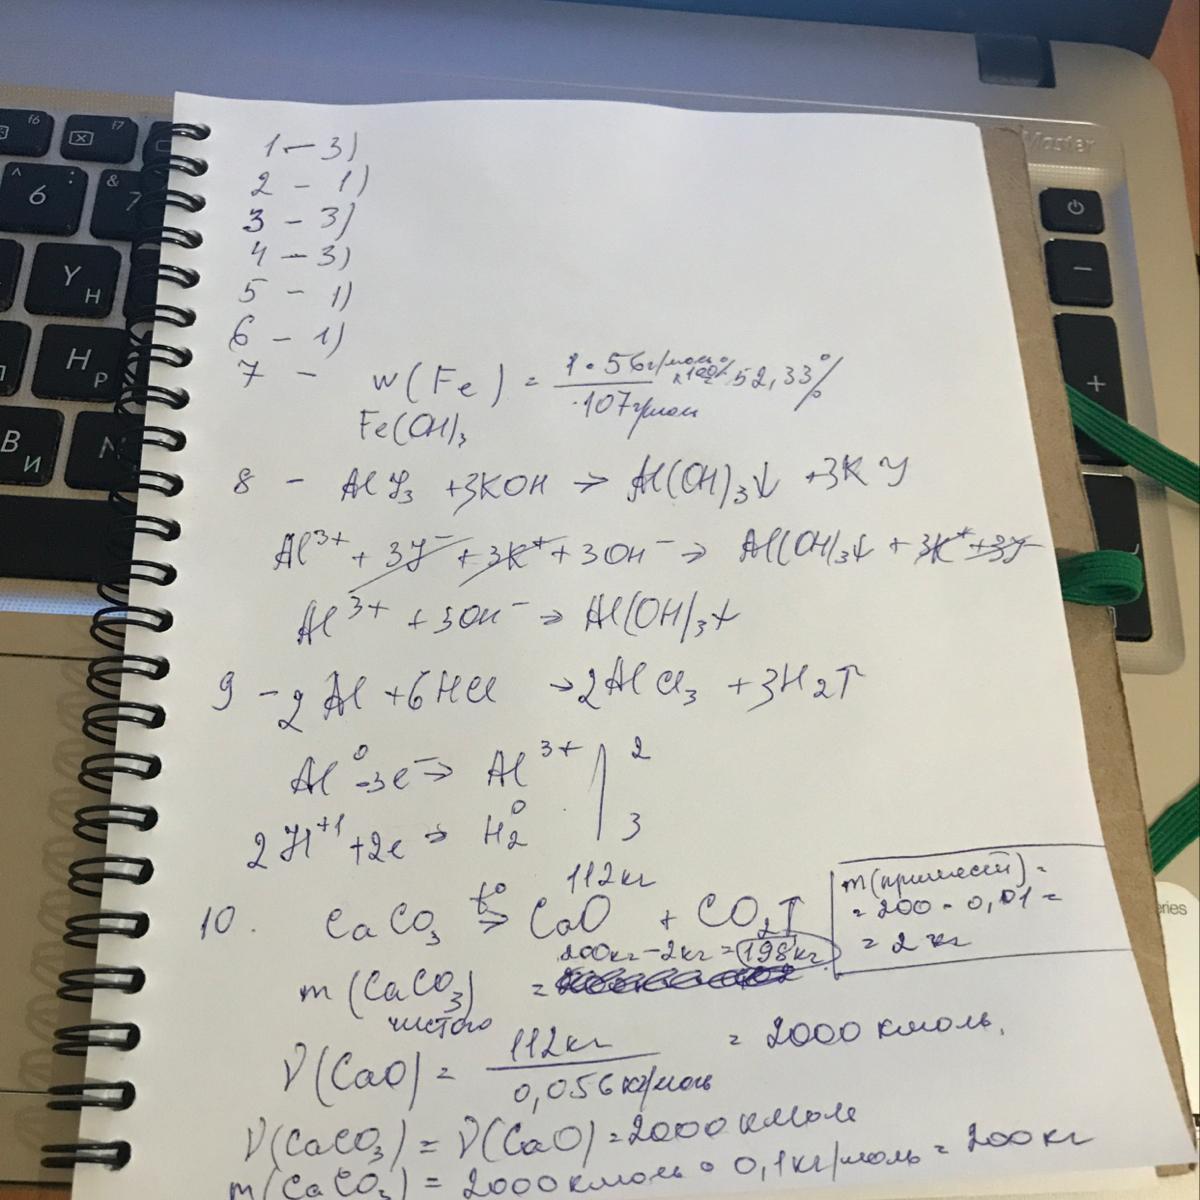 1 – 3)
2 – 1)
3 – 3)
4 – 3)
5 – 1)
6 – 1)
7 – w(Fe) = 1·56г/моль / 107г/моль × 100% = 52,33%
Fe(OH)₃
8 – AlJ₃ + 3KOH → Al(OH)₃↓ + 3KJ
Al³⁺ + 3J⁻ + 3K⁺ + 3OH⁻ → Al(OH)₃↓ + 3K⁺ + 3J⁻
Al³⁺ + 3OH⁻ → Al(OH)₃↓
9 – 2Al + 6HCl → 2AlCl₃ + 3H₂↑
Al⁰ -3e⁻ → Al³⁺ | 2
2H⁺¹ +2e → H₂⁰ | 3
112кг
10. CaCO₃ t° → CaO + CO₂↑
m(примесей) =
= 200 · 0,01 =
= 2 кг
m(CaCO₃) = 200кг – 2кг = 198кг
чистого
ν(CaO) = 112кг / 0,056кг/моль = 2000 кмоль.
ν(CaCO₃) = ν(CaO) = 2000 кмоль
m(CaCO₃) = 2000 кмоль · 0,1кг/моль = 200кг
f6
f7
^
6
:
&
7
Y
Н
H
Р
В
И
N
Master
+
eries